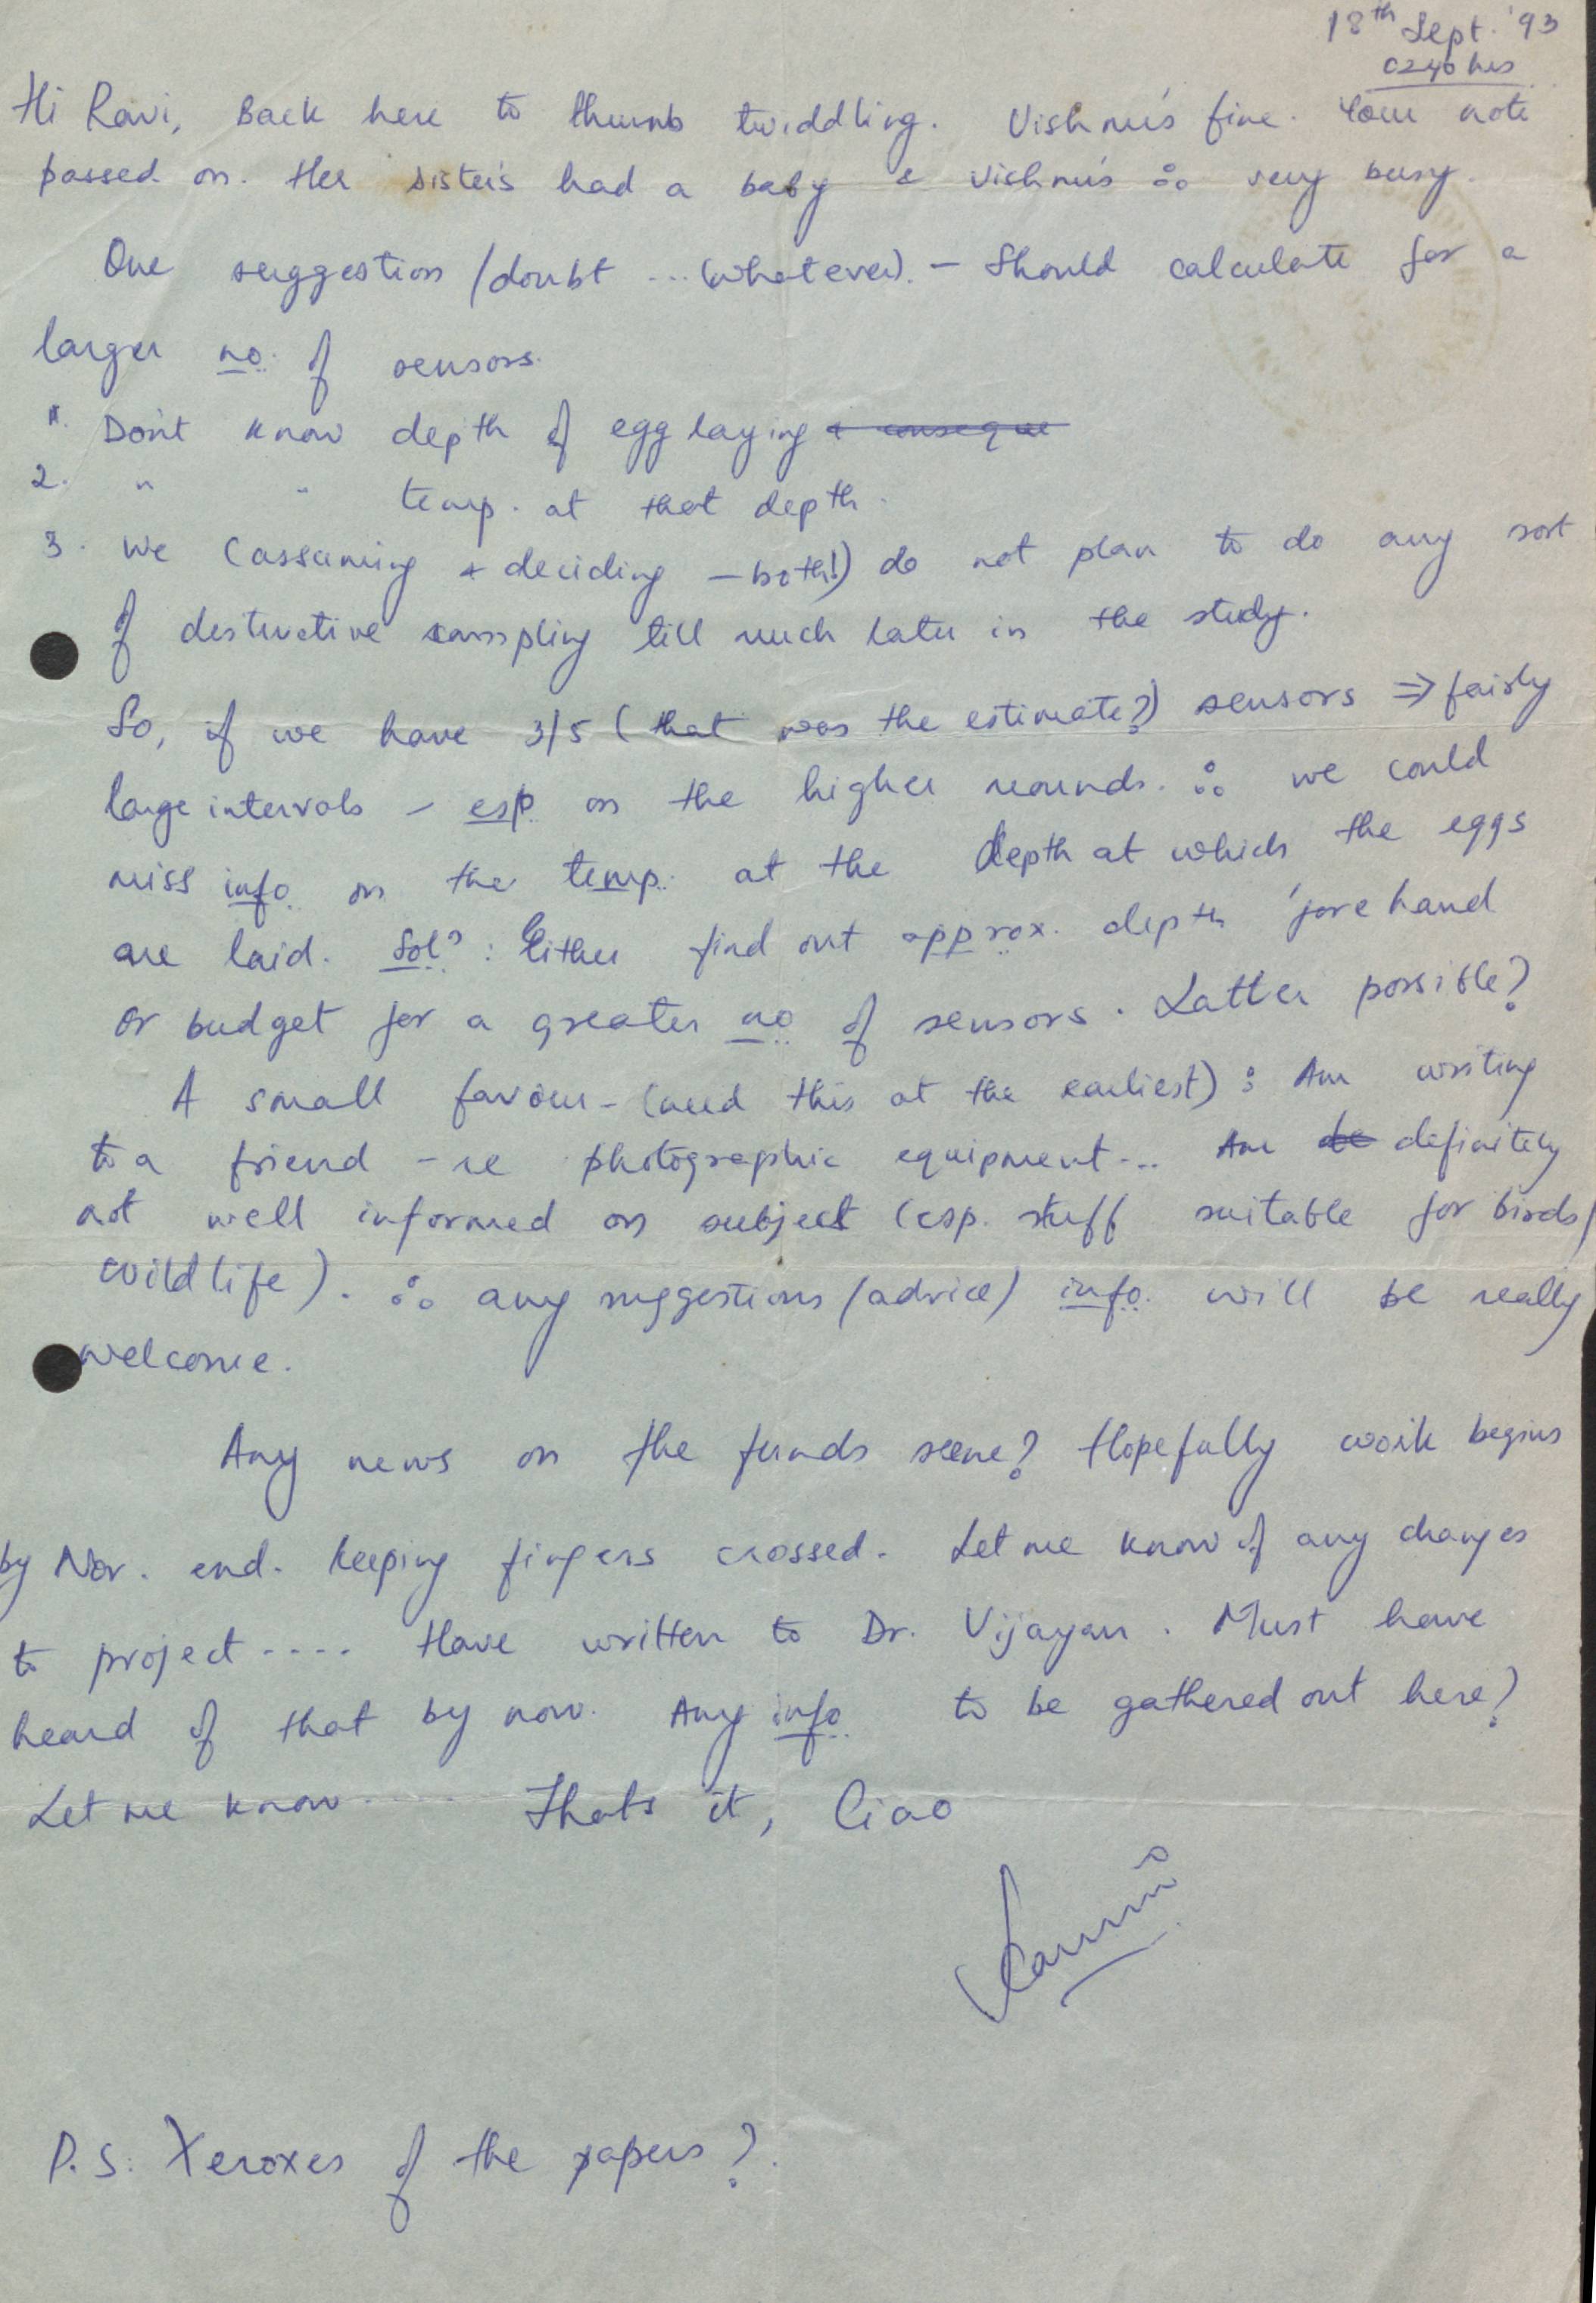 18th Sept. '93
0240 hrs
Hi Ravi, Back here to thumb twiddling. Vishnu's fine. Your note
passed on. Her sister's had a baby & Vishnu's ∴ very busy.
One suggestion/doubt ...(whatever). - Should calculate for a
larger no. of sensors.
1. Don't know depth of egg laying & conseque
2. " " temp. at that depth.
3. We (assuming & deciding - both!) do not plan to do any sort
of destructive sampling till much later in the study.
So, if we have 3/5 (that was the estimate?) sensors ⇒ fairly
large intervals - esp. on the higher mounds. ∴ we could
miss info. on the temp. at the depth at which the eggs
are laid. Soln: Either find out approx. depth 'forehand
or budget for a greater no. of sensors. Latter possible?
A small favour - (need this at the earliest): Am writing
to a friend - re photographic equipment... Am de definitely
not well informed on subject (esp. stuff suitable for birds/
wildlife). ∴ any suggestions/advice/info. will be really
welcome.
Any news on the funds scene? Hopefully work begins
by Nov. end. Keeping fingers crossed. Let me know if any changes
to project.... Have written to Dr. Vijayan. Must have
heard of that by now. Any info. to be gathered out here?
Let me know..... Thats it, Ciao
P.S: Xeroxes of the papers?